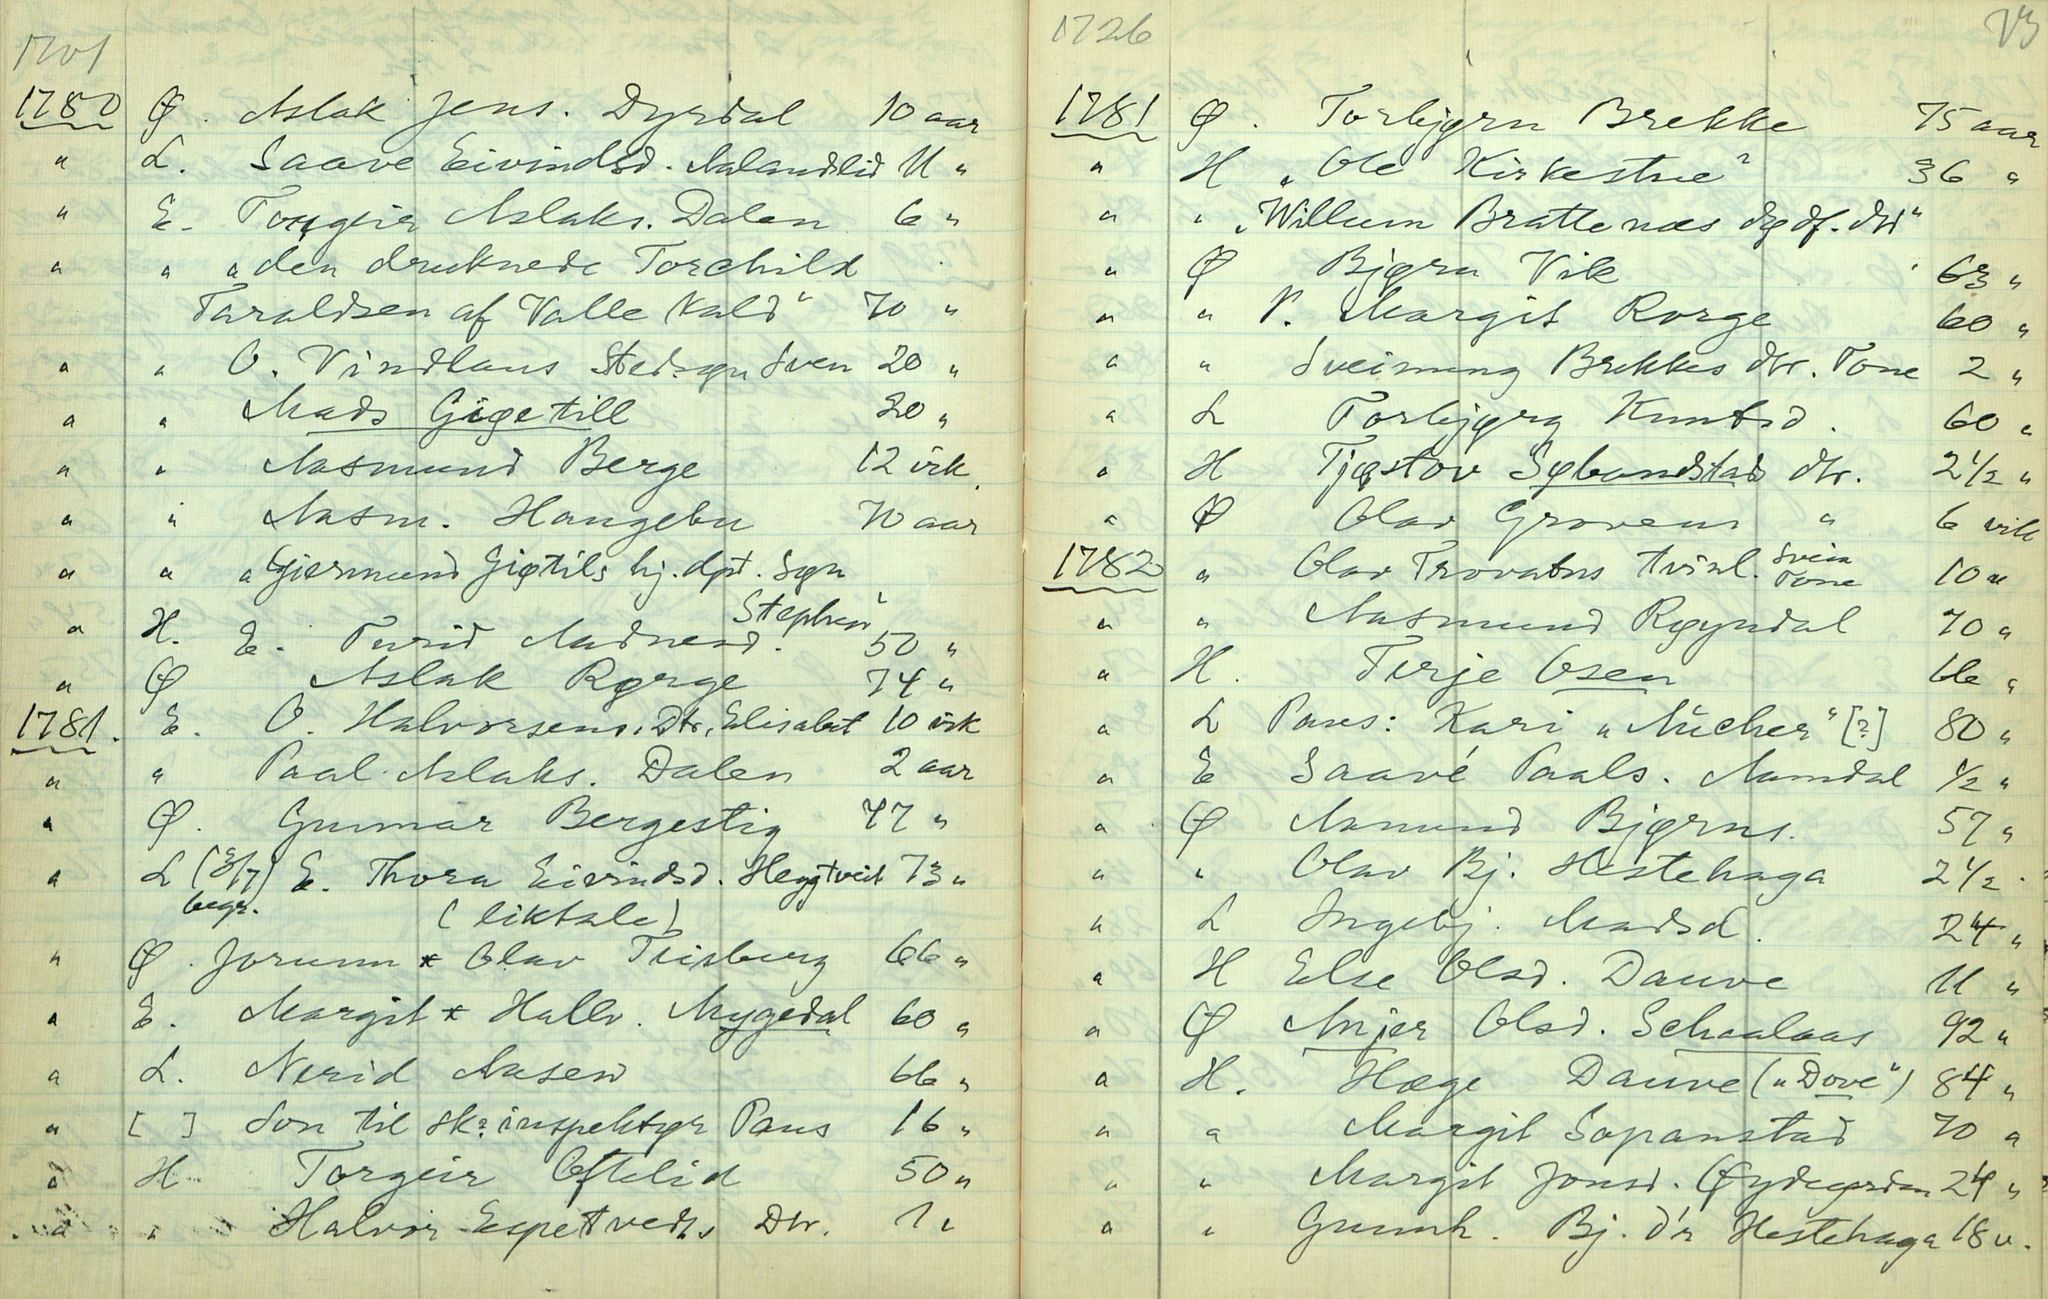 1701
1780 Ø. Aslak Jens. Dyrdal 10 aar
" L. Saave Eivindsd. Aalandslid 11 "
" E. Torgeir Aslaks. Dalen 6 "
" " "den druknede Torchild
Taraldsen af Valle Kald" 70 "
" " O. Vindlaus Stedsøn Sven 20 "
" " Mads Gigetill 20 "
" " Aasmund Berge 12 vik.
" " Aasm. Haugebu 70 aar
" " "Gjermund Gigtils hj. dpt. Søn
Stephen"
" H. E. Turid Aadnesd. 50 "
" Ø Aslak Rørge 74 "
1781. E. O. Halvorsens Dtr. Elisabet 10 vik
" " Paal Aslaks. Dalen 2 aar
" Ø. Gunnar Bergestig 77 "
" L (3/7) E. Thora Eivindsd. Høgtveit 73 "
begr. (liktale)
" Ø. Jorunn * Olav Tveisberg 66 "
" E. Margit * Hallv. Mygedal 60 "
" L. Nerid Aasen 66 "
" [ ] Son til sk? inspektør Paus 16 "
" H Torgeir Oftelid 50 "
" " Halvor Espetvedts Dtr. 1 "
1726 73
1781 Ø. Torbjørn Brekke 75 aar
" H "Ole Kirkestue" 36 "
" " "Willum Brattenæs dødf. dtr"
" Ø Bjørn Vik 63 "
" " V. Margit Rorge 60 "
" " Sveinung Brekkes dtr. Tone 2 "
" L Torbjørg Knutsd. 60 "
" H Tjøstov Søbundstad dtr. 2 1/2 "
" Ø Olav Grovens " 6 vik
1782 " Olav Trovatns tvinl. Svein Tone 10 "
" " Aasmund Røyndal 70 "
" H. Terje Osen 66 "
" L Paus: Kari "Aücher" [?] 80 "
" E Saavé Paals. Aamdal 1/2 "
" Ø Aamund Bjørns. 57 "
" " Olav Bj. Hestehaga 2 1/2 "
" L Ingebj. Madsd. 24 "
" H Else Olsd. Dauve 11 "
" Ø Anjer Olsd. Schaalaas 92 "
" H. Hæge Dauve ("Dove") 84 "
" " Margit Sopanstad 70 "
" " Margit Jonsd. Øydegarden 24 "
" " Gunnh. Bj. d'r Hestehaga 18 u.